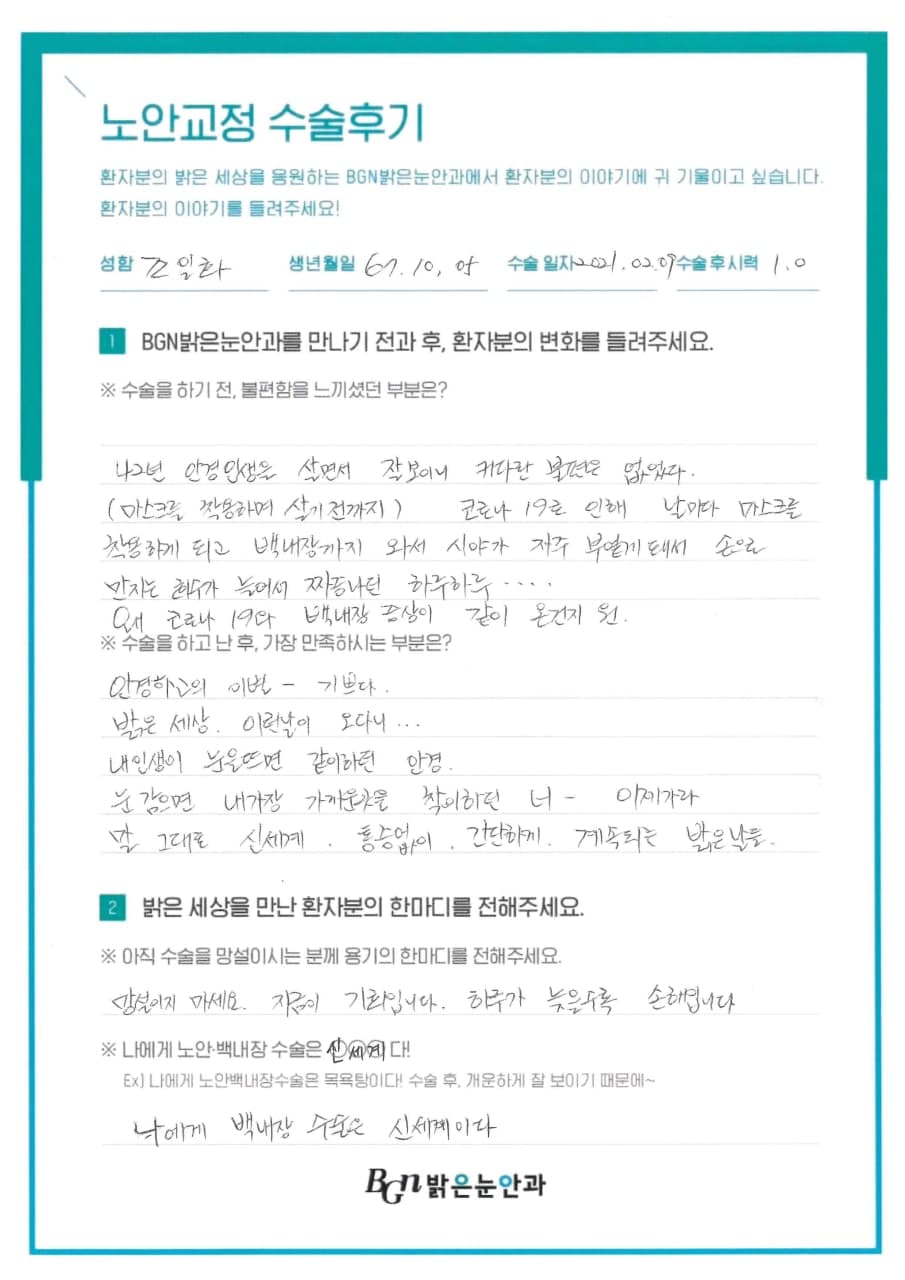 노안교정 수술후기
환자분의 밝은 세상을 응원하는 BGN밝은눈안과에서 환자분의 이야기에 귀 기울이고 싶습니다.
환자분의 이야기를 들려주세요!
성함 조일화 생년월일 67.10.05 수술 일자 2021.02.09 수술 후 시력 1.0
1 BGN밝은눈안과를 만나기 전과 후, 환자분의 변화를 들려주세요.
※ 수술을 하기 전, 불편함을 느끼셨던 부분은?
42년 안경인생은 살면서 잘보이니 커다란 불편은 없었다.
(마스크를 착용하며 살기 전까지) 코로나 19로 인해 날마다 마스크를
착용하게 되고 백내장까지 와서 시야가 자주 부옇게 돼서 손으로
만지는 횟수가 늘어서 짜증나던 하루하루 ....
왜 코로나 19와 백내장 증상이 같이 온건지 원.
※ 수술을 하고 난 후, 가장 만족하시는 부분은?
안경하고의 이별 - 기쁘다.
밝은 세상. 이런날이 오다니 ...
내인생이 눈을뜨면 같이하던 안경.
눈 감으면 내가장 가까운곳을 착이하던 너 - 이제가라
말 그대로 신세계. 통증없이. 간단하게. 계속되는 밝은날들.
2 밝은 세상을 만난 환자분의 한마디를 전해주세요.
※ 아직 수술을 망설이시는 분께 용기의 한마디를 전해주세요.
망설이지 마세요. 지금이 기회입니다. 하루가 늦을수록 손해입니다
※ 나에게 노안·백내장 수술은 신세계다!
Ex) 나에게 노안백내장수술은 목욕탕이다! 수술 후, 개운하게 잘 보이기 때문에~
나에게 백내장 수술은 신세계이다
BGN 밝은눈안과